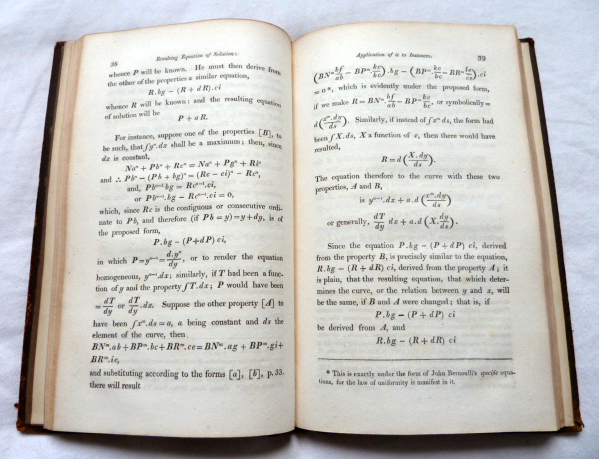 38 Resulting Equation of Solution:
whence P will be known. He must then derive from
the other of the properties a similar equation,
R.bg − (R + dR).ci
whence R will be known: and the resulting equation
of solution will be
P + aR.
For instance, suppose one of the properties [B], to
be such, that ∫yⁿ.dx shall be a maximum; then, since
dx is constant,
Naⁿ + Pbⁿ + Rcⁿ = Naⁿ + Pgⁿ + Riⁿ
and ∴ Pbⁿ − (Pb + bg)ⁿ = (Rc − ci)ⁿ − Rcⁿ,
and, Pbⁿ⁻¹.bg = Rcⁿ⁻¹.ci,
or Pbⁿ⁻¹.bg − Rcⁿ⁻¹.ci = 0,
which, since Rc is the contiguous or consecutive ordi-
nate to Pb, and therefore (if Pb = y) = y + dy, is of
the proposed form,
P.bg − (P + dP) ci,
in which P = yⁿ⁻¹ = d.yⁿ/dy, or to render the equation
homogeneous, yⁿ⁻¹.dx; similarly, if T had been a func-
tion of y and the property ∫T.dx; P would have been
= dT/dy or dT/dy.dx. Suppose the other property [A] to
have been ∫xᵐ.ds = a, a being constant and ds the
element of the curve, then
BNᵐ.ab + BPᵐ.bc + BRᵐ.ce = BNᵐ.ag + BPᵐ.gi +
BRᵐ.ie,
and substituting according to the forms [a], [b], p. 33.
there will result
Application of it to Instances. 39
(BNᵐ bf/ab − BPᵐ kc/bc).bg − (BPᵐ kc/bc − BRᵐ le/ce).ci
= 0*, which is evidently under the proposed form,
if we make R = BNᵐ bf/ab − BPᵐ kc/bc, or symbolically =
d(xᵐ.dy/ds). Similarly, if instead of ∫xᵐ ds, the form had
been ∫X.ds, X a function of x, then there would have
resulted,
R = d(X.dy/ds).
The equation therefore to the curve with these two
properties, A and B,
is yⁿ⁻¹.dx + a.d(xᵐ.dy/ds)
or generally, dT/dy dx + a.d(X.dy/ds).
Since the equation P.bg − (P + dP) ci, derived
from the property B, is precisely similar to the equation,
R.bg − (R + dR) ci, derived from the property A; it
is plain, that the resulting equation, that which deter-
mines the curve, or the relation between y and x, will
be the same, if B and A were changed; that is, if
P.bg − (P + dP) ci
be derived from A, and
R.bg − (R + dR) ci
* This is exactly under the form of John Bernoulli's specific equa-
tions, for the law of uniformity is manifest in it.